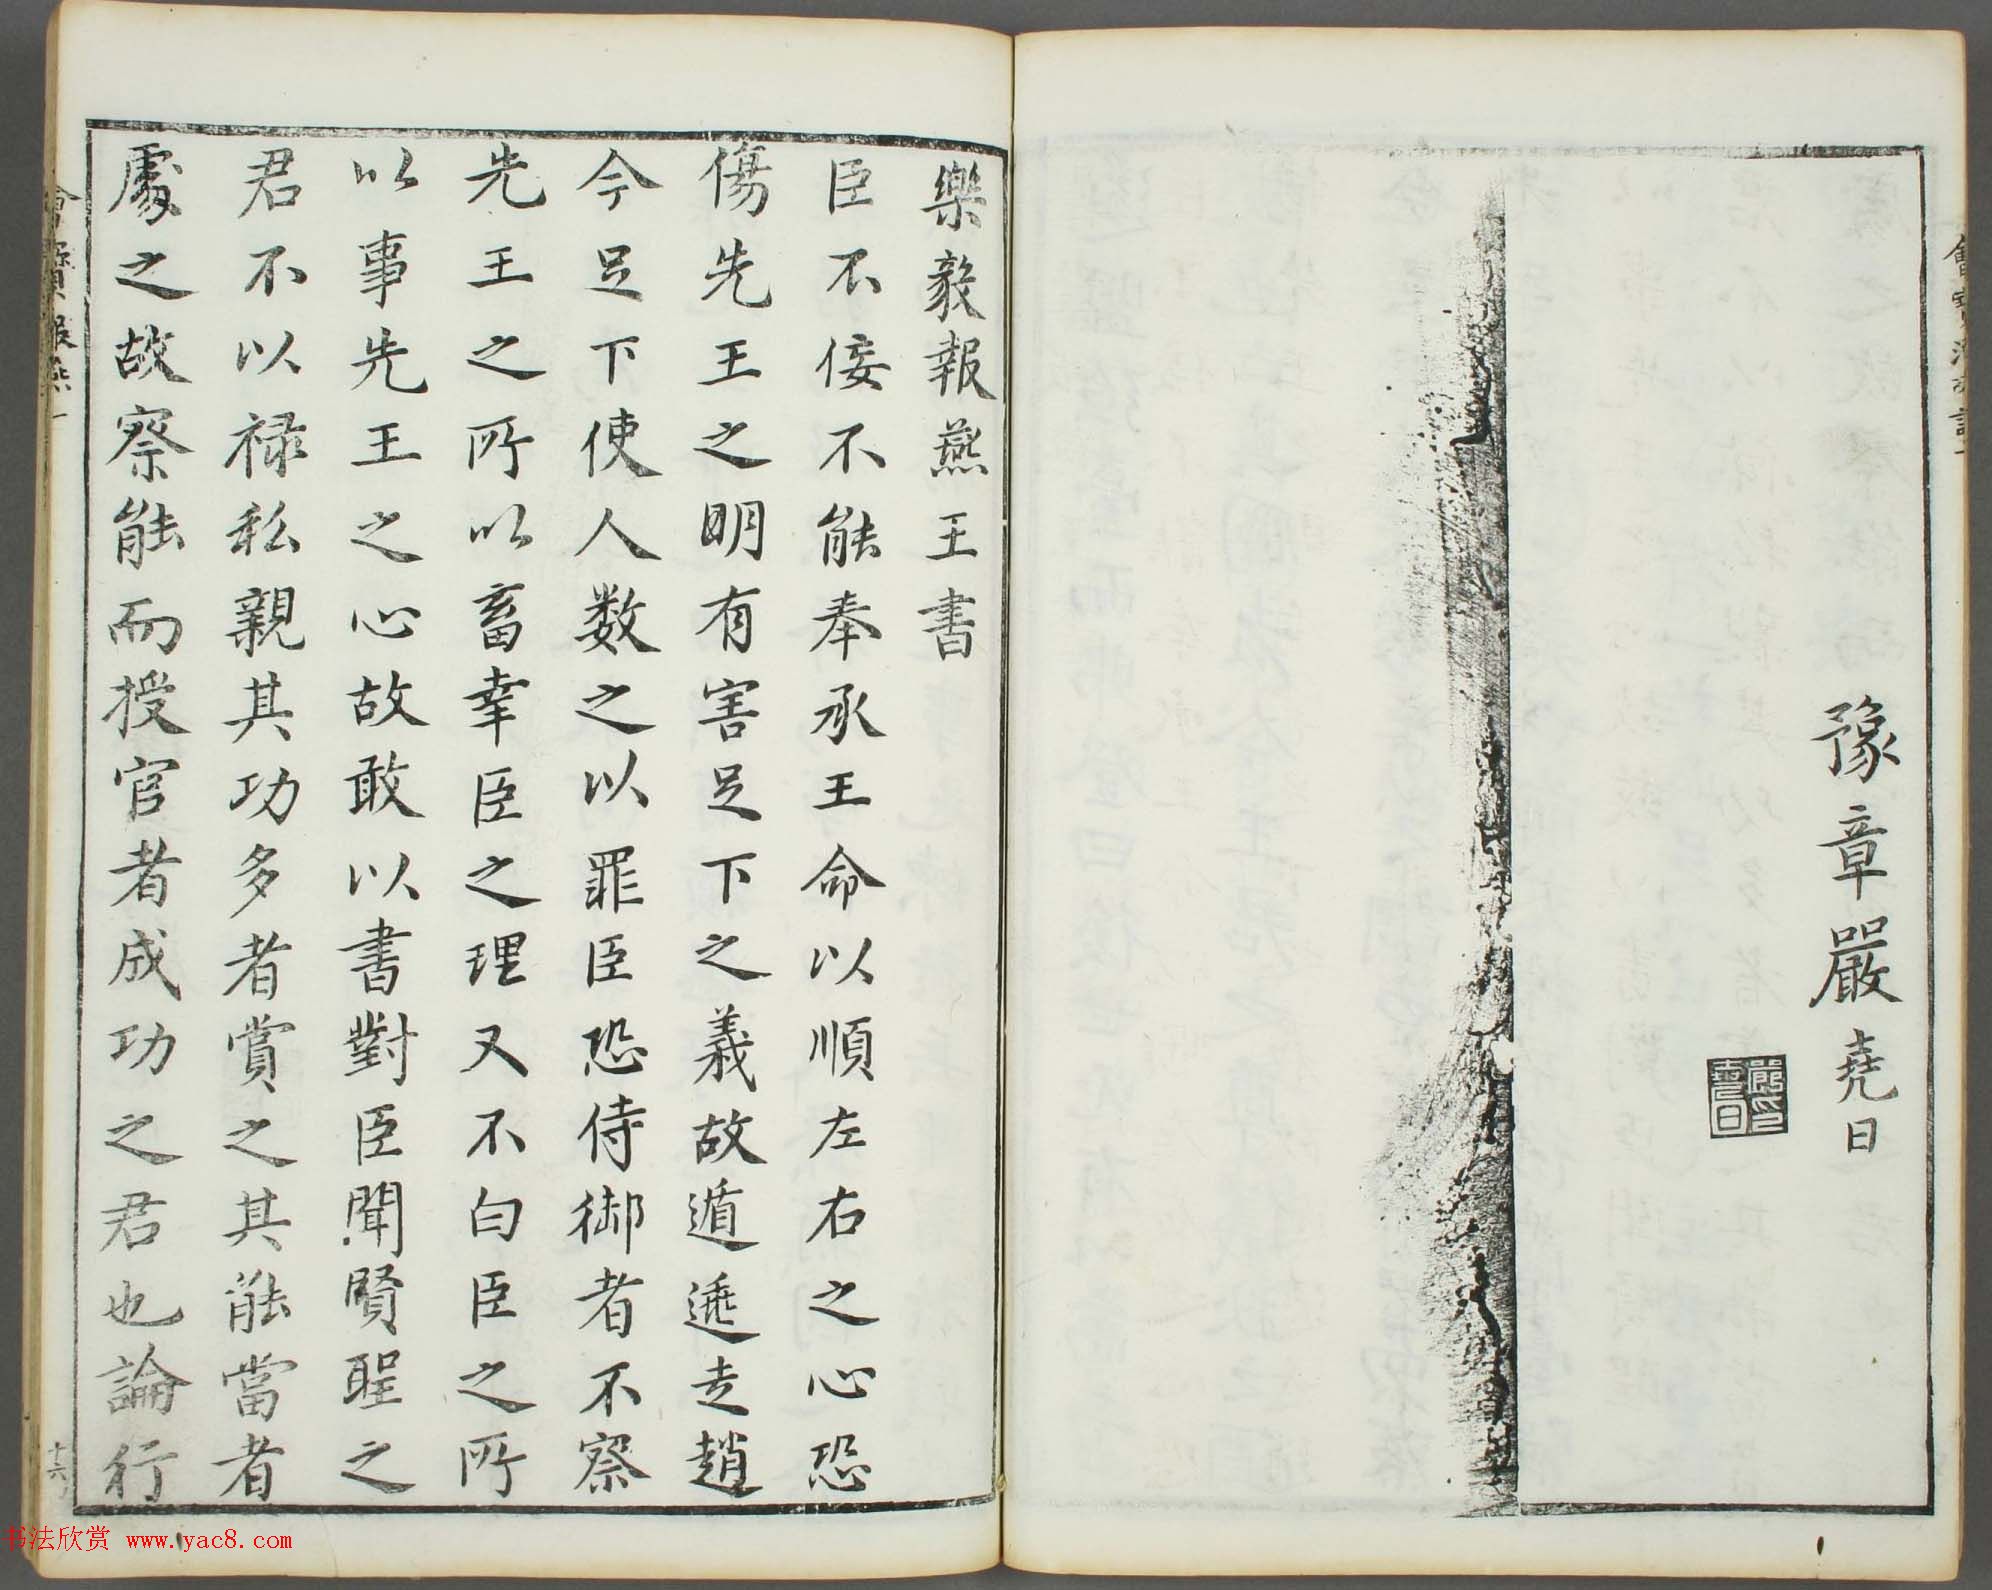 豫章嚴堯日
樂毅報燕王書
臣不佞不能奉承王命以順左右之心恐
傷先王之明有害足下之義故遁逃走趙
今足下使人数之以罪臣恐侍御者不察
先王之所以畜幸臣之理又不白臣之所
以事先王之心故敢以書對臣聞賢聖之
君不以禄私親其功多者賞之其能當者
處之故察能而授官者成功之君也論行
十六
书法欣赏 www.yac8.com